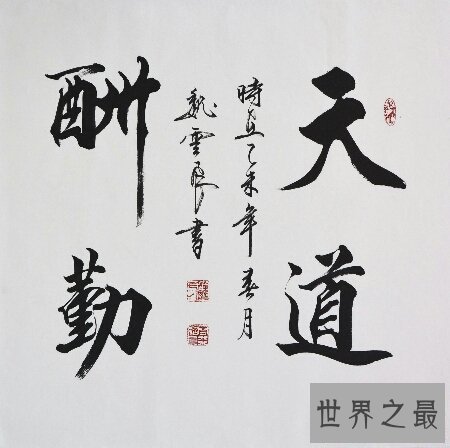 天道
酬勤
時乙未年春月
魏雲書
世界之最